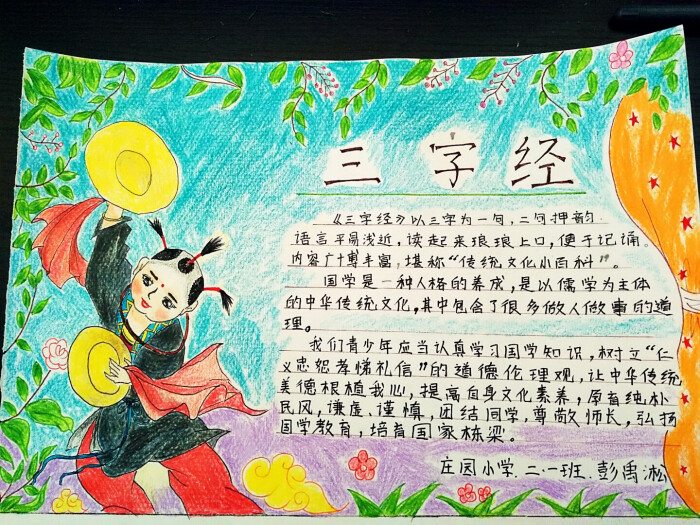 三字经
《三字经》以三字为一句，二句押韵.
语言平易浅近，读起来琅琅上口，便于记诵.
内容广博丰富，堪称“传统文化小百科”。
国学是一种人格的养成，是以儒学为主体
的中华传统文化，其中包含了很多做人做事的道
理。
我们青少年应当认真学习国学知识，树立“仁
义忠恕孝悌礼信”的道德伦理观，让中华传统
美德根植我心，提高自身文化素养，原有纯朴
民风，谦虚、谨慎，团结同学，尊敬师长，弘扬
国学教育，培育国家栋梁。
庄园小学.二.一班.彭禹淞